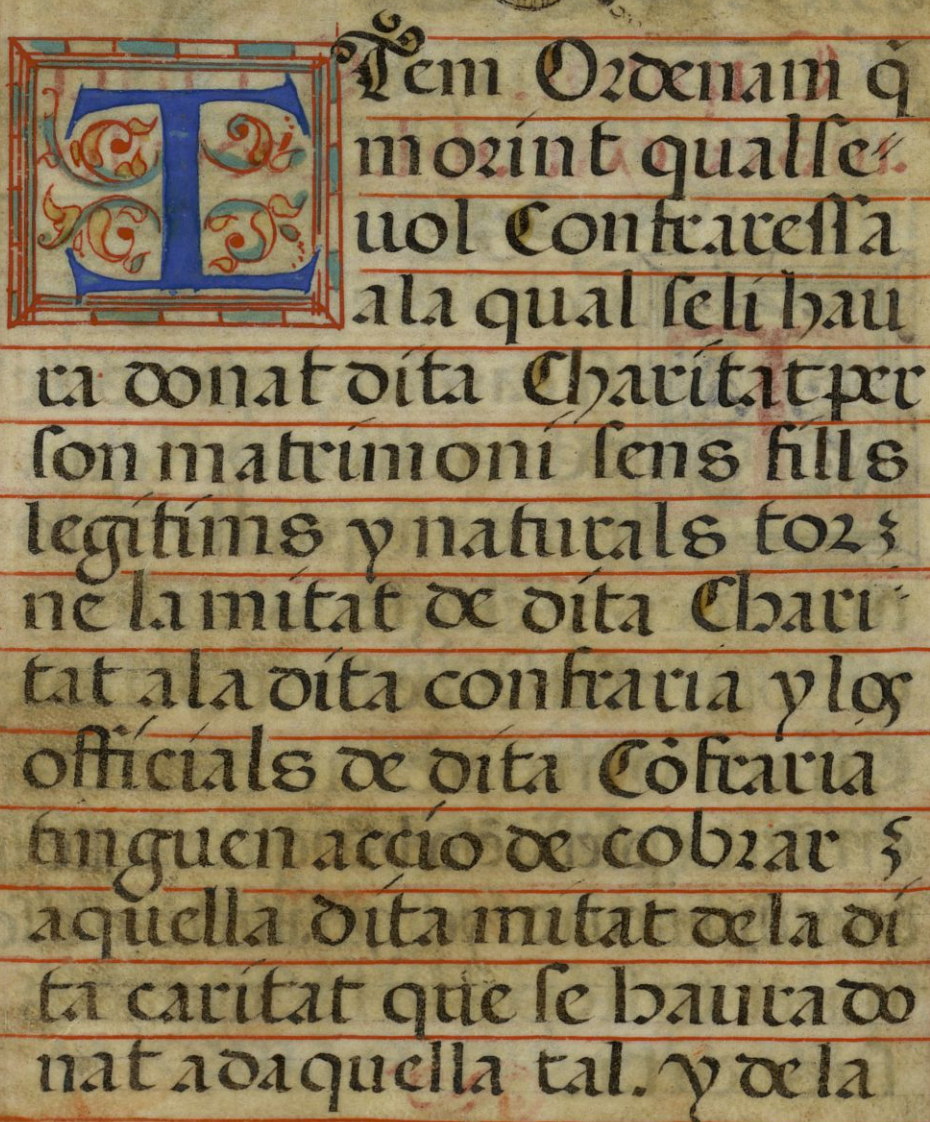 Item Ordenam q̃
morint qualse⸗
uol Confraressa
a la qual se li hau
ra donat dita Charitat per
son matrimoni sens fills
legitims y naturals torꝫ
ne la mitat de dita Chari⸗
tat a la dita confraria y los
officials de dita Cõfraria
tinguen accio de cobrar ꝫ
aquella dita mitat de la di
ta caritat que se haura do
nat a daquella tal. y de la